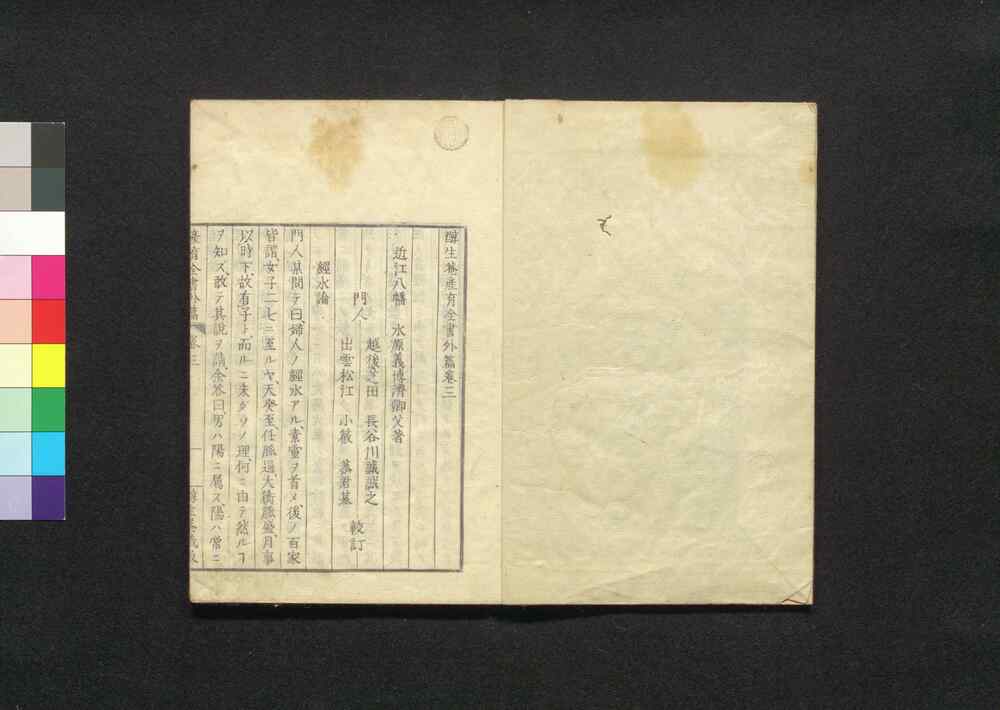 醇生菴産育全書外篇卷三
近江八幡　水原義博濟卿父著
門人
越後　田　長谷川誠　之
出雲松江　小　　　君
較訂
經水論
門人某問テ曰、婦人ノ經水アル、素靈ヲ首メ後ノ百家
皆謂女子二七ニ至ルヤ、天癸至任脈通、大衝脈盛、月事
以時下、故有子ト、而ルニ未ダソノ理、何ニ由テ然ルヿ
ヲ知ズ、敢テ其說ヲ請、余答曰、男ハ陽ニ屬ス、陽ハ常ニ
産育全書外篇　卷三